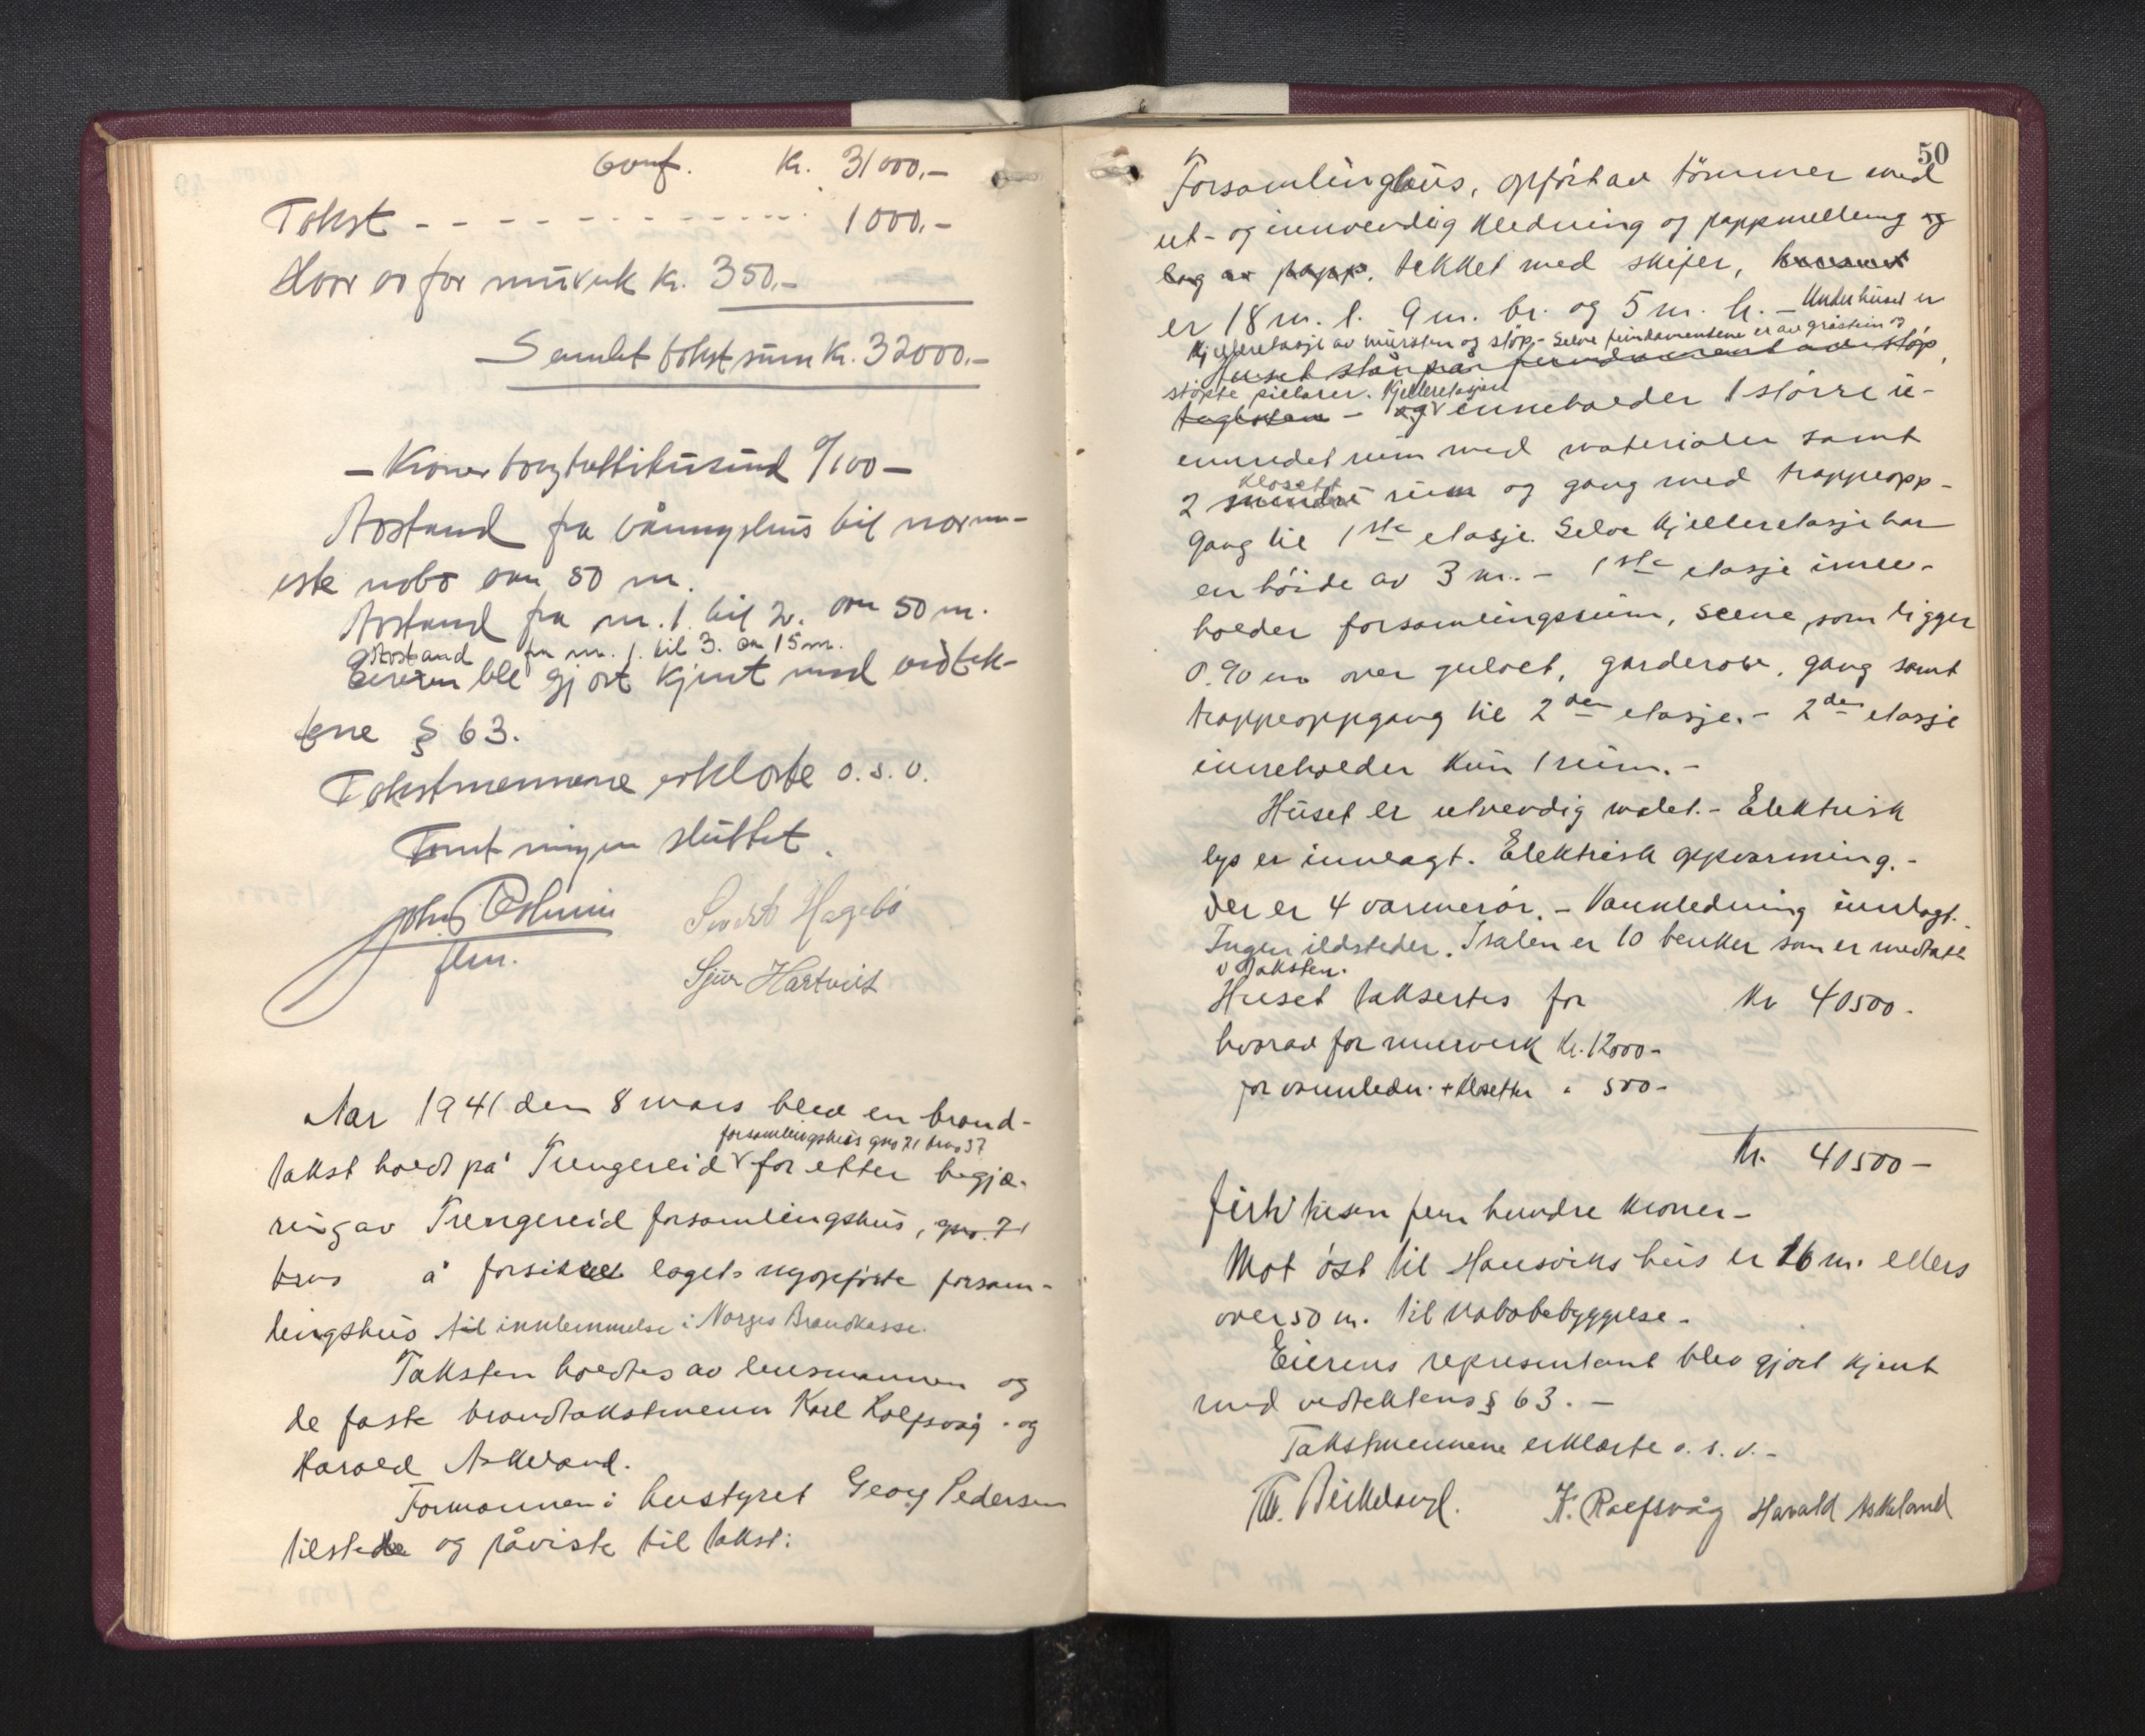 Overf. Kr. 31000,-
Takst - - - - - - - - - - 1000,-
Hvor av for murverk Kr. 350,-
Samlet takst sum Kr. 32000,-
- Kroner trogtottitusund 0/100 -
Avstand fra våningshus til nærm-
este nabo over 50 m.
Avstand fra nr. 1 til 2. over 50 m.
Avstand fra nr. 1 til 3. er 15 m.
Eieren ble gjort kjent med vedtek-
tene § 63.
Takstmennene erklærte o. s. v.
Forretningen sluttet.
Sivert Hagebø
flm.
Sjur Hartveit
Aar 1941 den 8 mars blev en brand-
forsamlingshus gno 71 bno 37
takst holdt på Trengereid for efter begjæ-
ring av Trengereid forsamlingshus, gno. 71
bno å forsikret lagets nyopførte forsam-
lingshus til innlemmelse i Norges Brandkasse.
Taksten holdtes av lensmannen og
de faste brandtakstmenn Karl Rolfsvåg og
Harald Askeland.
Formannen i husstyret Georg Pedersen
tilstede og påviste til takst:
50
Forsamlinghus, opført av tømmer med
ut- og innvendig kledning og pappmellemlag og
lag av papp, tekket med skifer, huset
er 18 m. l. 9 m. br. og 5 m. h. - Underhuset er
kjelleretasje av mursten og støp - Selve fundamentene er av gråstein og
Huset står på fundament av støp,
støpte pillarer. Kjelleretasjen
teglsten - og inneholder 1 større u-
innredet rum med materialer samt
klosett
2 mindre rum og gang med trappeopp-
gang til 1ste etasje. Selve kjelleretasje har
en høide av 3 m. - 1ste etasje inne-
holder forsamlingsrum, scene, som ligger
0.90 m over gulvet, garderobe, gang samt
trappeoppgang til 2den etasje. - 2den etasje
inneholder kun 1 rum. -
Huset er utvendig malet. - Elektrisk
lys er innlagt. Elektrisk oppvarming. -
Der er 4 varmerør. - Vannledning innlagt.
Ingen ildsteder. I salen er 10 benker som er medtatt
i taksten.
Huset takseres for Kr 40500.
hvorav for murverk Kr. 12000-
for vannledn. + klosetter " 500-
Kr. 40500-
firti tusen fem hundre kroner -
Mot øst til Hansviks hus er 16 m. ellers
over 50 m. til nabobebyggelse -
Eierens representant blev gjort kjent
med vedtektens § 63. -
Takstmennene erklærte o. s. v. -
K. Rolfsvåg Harald Askeland